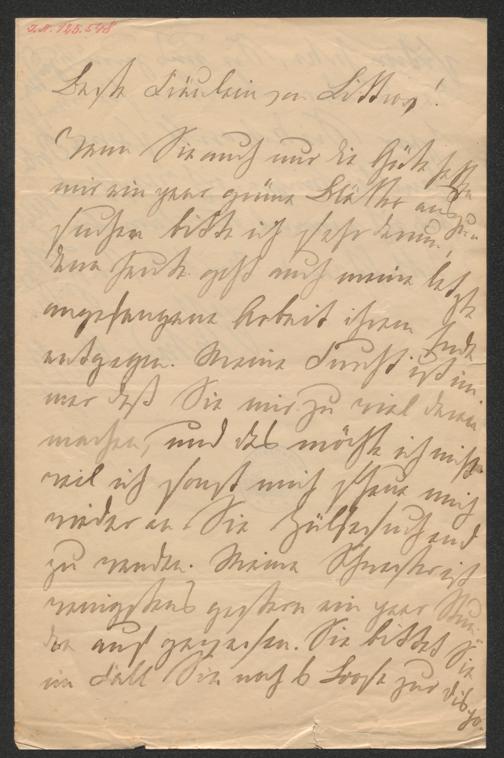 J.N. 125.548
Beste Fräulein von Littrow!
Wenn Sie auch nur die Güte hätten
mir ein paar grüne Blätter aus zu
suchen bitte ich sehr darum,
denn heute geht auch meine letzte
angefangene Arbeit ihrem Ende
entgegen. Meine Furcht ist im
mer daß Sie mir zu viel davon
machen, und das möchte ich nicht
weil ich sonst mich scheue mich
wieder an Sie Hülfesuchend
zu wenden. Meine Schwester ist
wenigstens gestern ein paar Stun-
den auf gewesen. Sie bittet Sie
im Fall Sie noch 6 Loose zur Dispo-